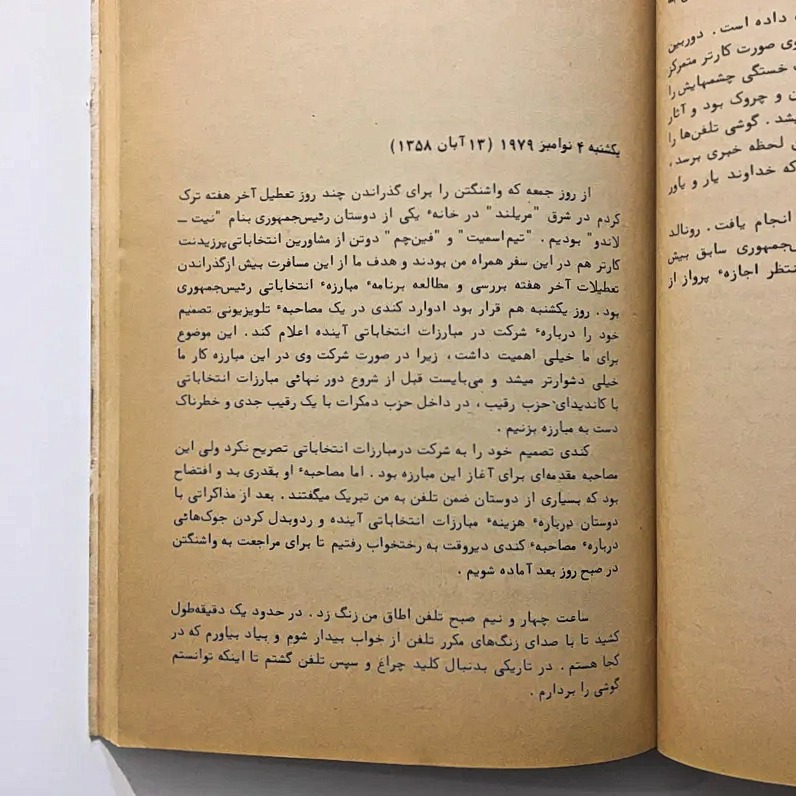 داده است . دوربین
وی صورت کارتر متمرکز
خستگی چشمهایش را
ن و چروک بود و آثار
یشد . گوشی تلفن‌ها را
ی لحظه خبری برسد،
که خداوند یار و یاور
انجام یافت . رونالد
س‌جمهوری سابق بیش
نتظر اجازهٔ پرواز از
یکشنبه ۴ نوامبر ۱۹۷۹ (۱۳ آبان ۱۳۵۸)
از روز جمعه که واشنگتن را برای گذراندن چند روز تعطیل آخر هفته ترک
کردم در شرق "مریلند" در خانهٔ یکی از دوستان رئیس‌جمهوری بنام "نیت ـ
لاندو" بودیم . "تیم‌اسمیت" و "فین‌چم" دوتن از مشاورین انتخاباتی‌پرزیدنت
کارتر هم در این سفر همراه من بودند و هدف ما از این مسافرت بیش ازگذراندن
تعطیلات آخر هفته بررسی و مطالعه برنامهٔ مبارزهٔ انتخاباتی رئیس‌جمهوری
بود . روز یکشنبه هم قرار بود ادوارد کندی در یک مصاحبهٔ تلویزیونی تصمیم
خود را دربارهٔ شرکت در مبارزات انتخاباتی آینده اعلام کند . این موضوع
برای ما خیلی اهمیت داشت، زیرا در صورت شرکت وی در این مبارزه کار ما
خیلی دشوارتر میشد و می‌بایست قبل از شروع دور نهائی مبارزات انتخاباتی
با کاندیدای حزب رقیب ، در داخل حزب دمکرات با یک رقیب جدی و خطرناک
دست به مبارزه بزنیم .
کندی تصمیم خود را به شرکت درمبارزات انتخاباتی تصریح نکرد ولی این
مصاحبه مقدمه‌ای برای آغاز این مبارزه بود . اما مصاحبهٔ او بقدری بد و افتضاح
بود که بسیاری از دوستان ضمن تلفن به من تبریک میگفتند . بعد از مذاکراتی با
دوستان دربارهٔ هزینهٔ مبارزات انتخاباتی آینده و ردوبدل کردن جوک‌هائی
دربارهٔ مصاحبهٔ کندی دیروقت به رختخواب رفتیم تا برای مراجعت به واشنگتن
در صبح روز بعد آماده شویم .
ساعت چهار و نیم صبح تلفن اطاق من زنگ زد . در حدود یک دقیقه‌طول
کشید تا با صدای زنگ‌های مکرر تلفن از خواب بیدار شوم و بیاد بیاورم که در
کجا هستم . در تاریکی بدنبال کلید چراغ و سپس تلفن گشتم تا اینکه توانستم
گوشی را بردارم .